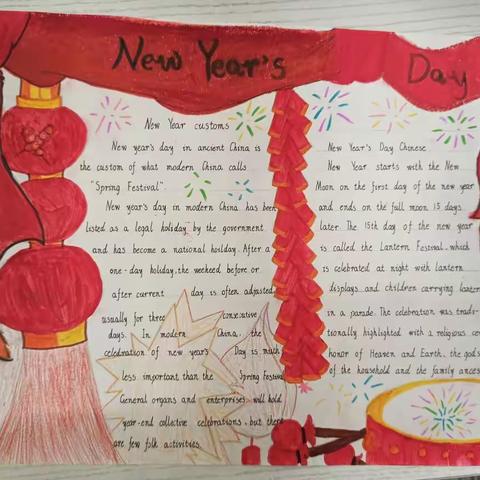 New Year's Day
New Year customs
New year's day in ancient China is
the custom of what modern China calls
"Spring Festival".
New year's day in modern China has been
listed as a legal holiday by the government
and has become a national holiday. After a
one-day holiday, the weekeed before or
after current day is often adjusted
usually for three consecutive
days. In modern China, the
celebration of new year's Day is much
less important than the Spring Festival
General organs and enterprises will hold
year-end collective celebrations, but there
are few folk activities.
New Year's Day Chinese
New Year starts with the New
Moon on the first day of the new year
and ends on the full moon 15 days
later. The 15th day of the new year
is called the Lantern Festival, which
is celebrated at night with lantern
displays and children carrying lanter
in a parade. The celebration was tradi-
tionally highlighted with a religious cer
honor of Heaven and Earth, the gods
of the household and the family ances